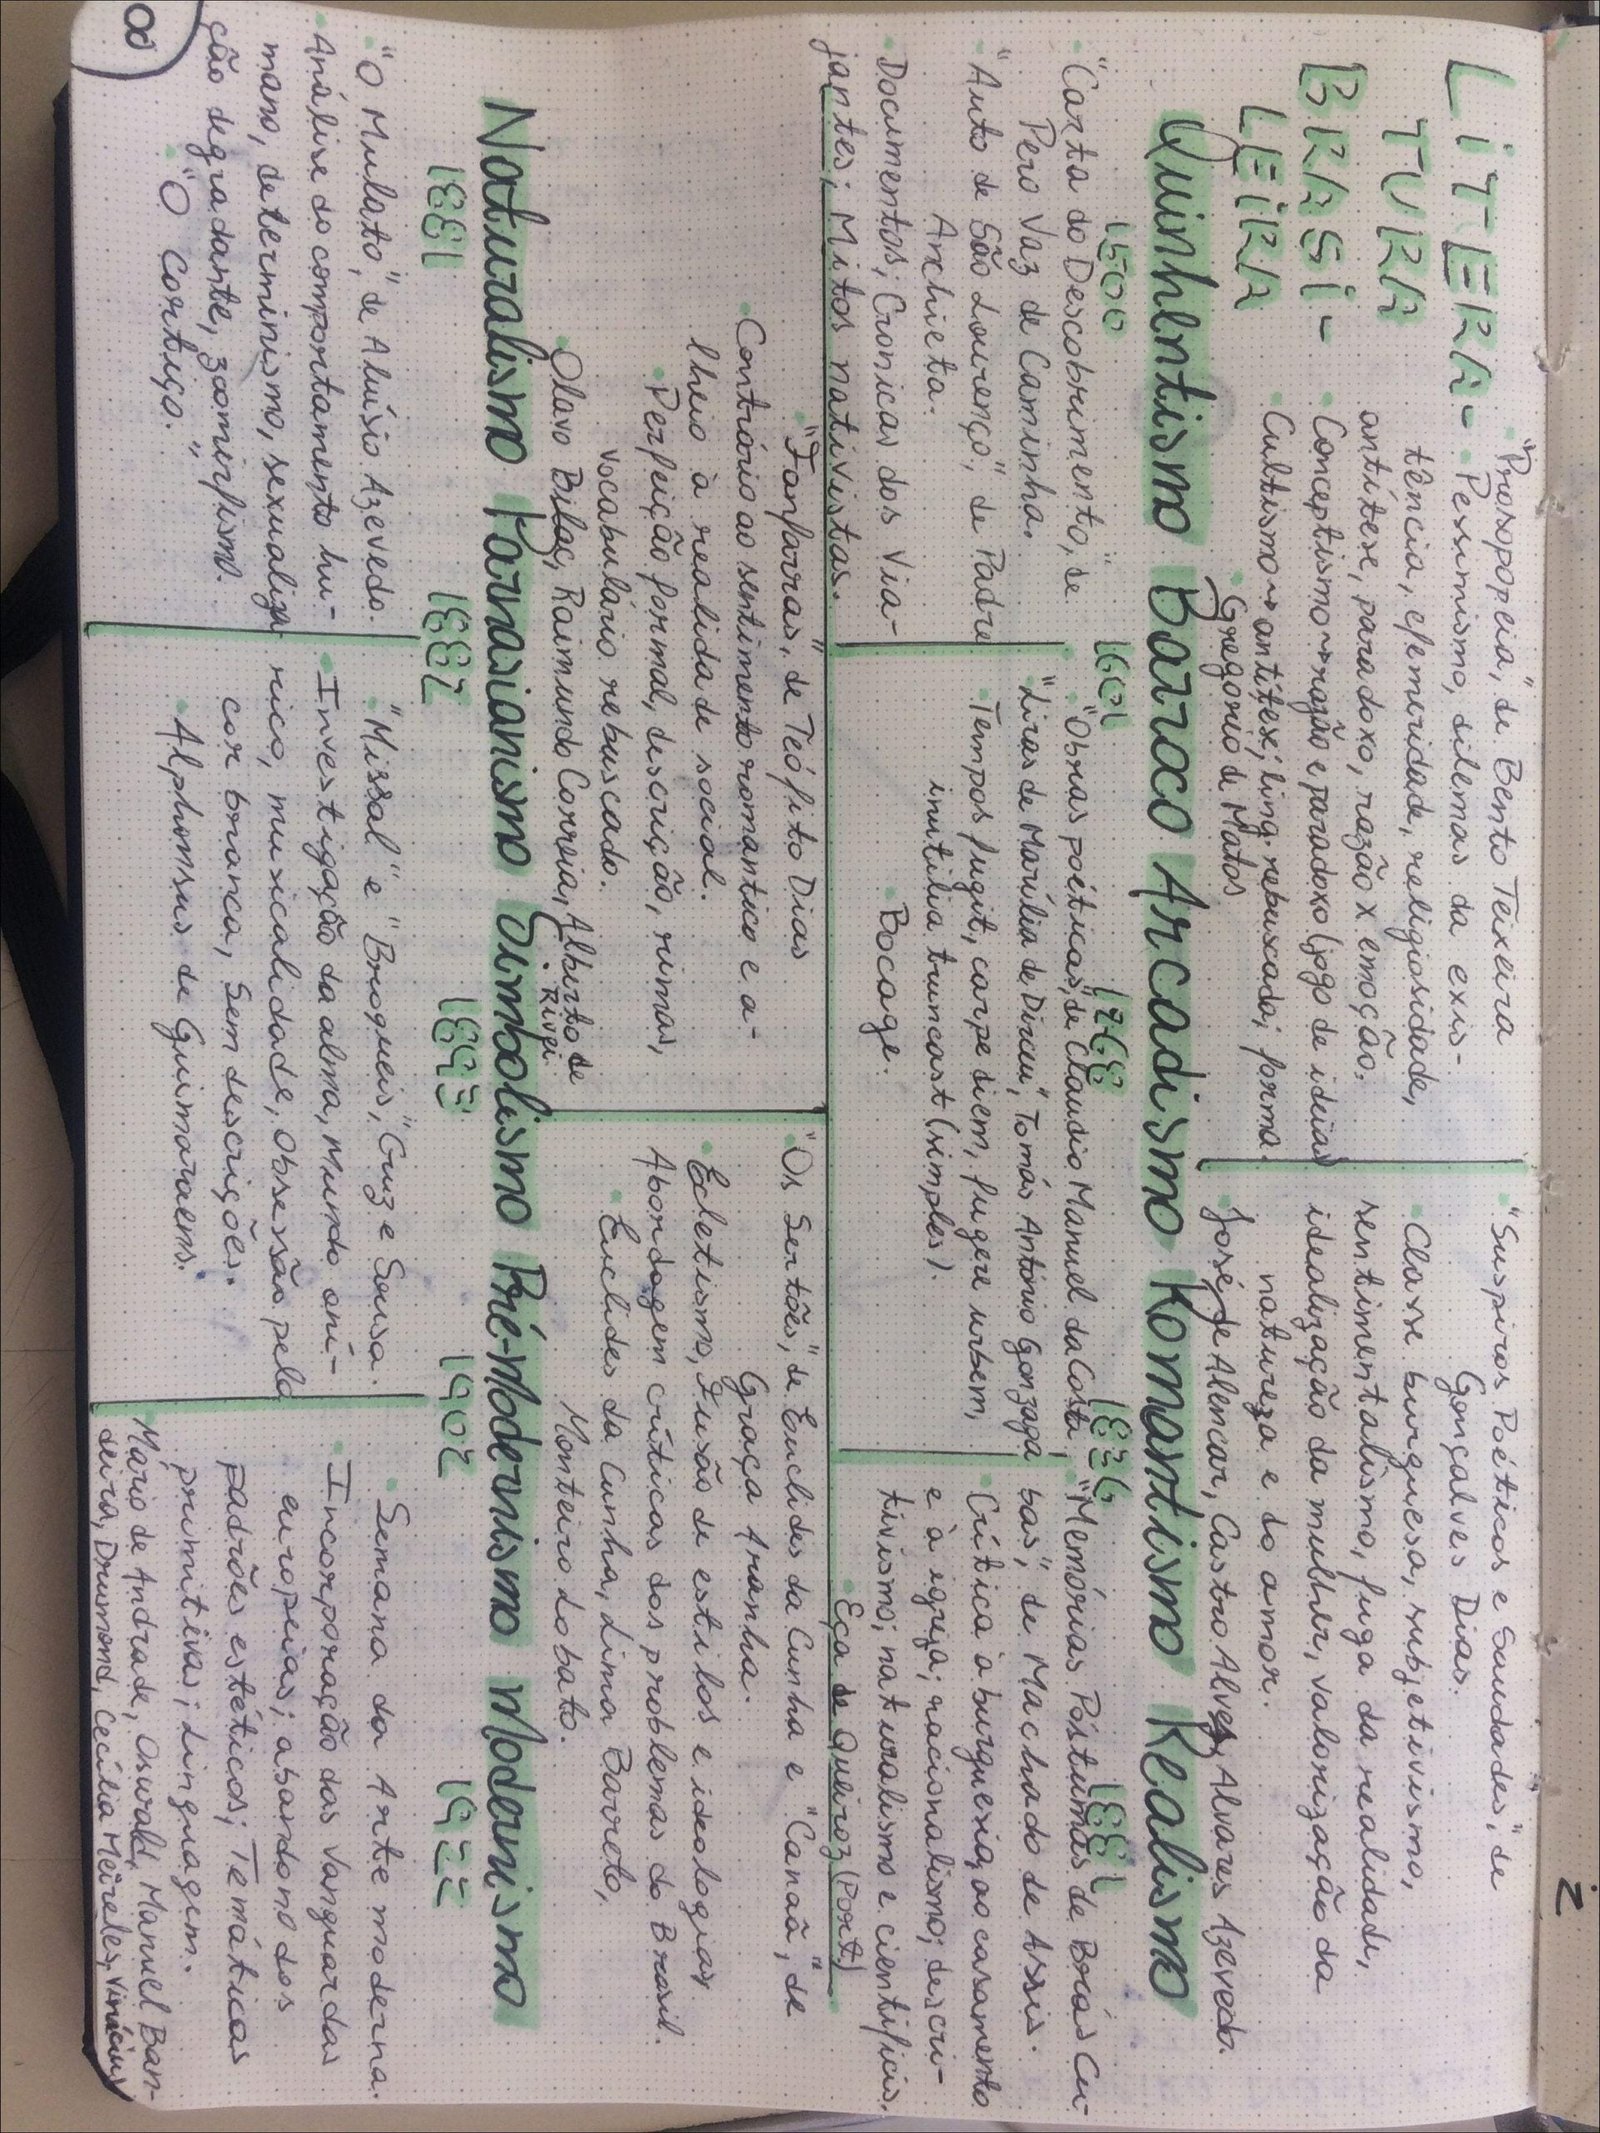 LITERA-
TURA
BRASI-
LEIRA
"Prosopopeia", de Bento Teixeira
Pessimismo, dilemas da exis-
tência, efemeridade, religiosidade,
antítese, paradoxo, razão x emoção.
Conceptismo ~> razão e paradoxo (jogo de ideias)
Cultismo ~> antítese, ling. rebuscada, forma.
Gregório de Matos
"Suspiros Poéticos e Saudades", de
Gonçalves Dias.
Classe burguesa, subjetivismo,
sentimentalismo, fuga da realidade,
idealização da mulher, valorização da
natureza e do amor.
José de Alencar, Castro Alves, Alvares Azevedo.
Quinhentismo Barroco Arcadismo Romantismo Realismo
1500 1601 1768 1836 1881
"Carta do Descobrimento", de
Pero Vaz de Caminha.
"Auto de São Lourenço", de Padre
Anchieta.
Documentos, Cronicas dos Via-
jantes; Mitos nativistas.
"Obras poéticas", de Claudio Manuel da Costa,
"Liras de Marília de Dirceu", Tomás Antônio Gonzaga
Tempos fugit, carpe diem, fugere urbem,
inutilia truncast (simples).
Bocage.
"Memórias Póstumas de Brás Cu-
bas", de Machado de Assis.
Crítica à burguesia, ao casamento
e à igreja; racionalismo; descri-
tivismo; naturalismo e cientificis.
Eça de Queiroz (Port)
"Fanfarras", de Teófito Dias
Contrário ao sentimento romantico e a-
lheio à realidade social.
Perfeição formal, descrição, rimas,
vocabulário rebuscado.
Olavo Bilac, Raimundo Correia, Alberto de
Rivei
"Os Sertões", de Euclides da Cunha e "Canaã", de
Graça Aranha.
Ecletismo, Fusão de estilos e ideologias
Abordagem críticas dos problemas do Brasil.
Euclides da Cunha, Lima Barreto,
Monteiro Lobato.
Naturalismo Parnasianismo Simbolismo Pré-Modernismo Modernismo
1881 1882 1893 1902 1922
"O Mulato", de Aluísio Azevedo.
Análise do comportamento hu-
mano, determinismo, sexualiza
ção degradante, zoomirfismo.
"O Cortiço."
"Missal" e "Broqueis", Cruz e Sousa.
Investigação da alma, Mundo oní-
rico, musicalidade, Obsessão pela
cor branca, Sem descrições.
Alphonsus de Guismaraens.
Semana da Arte moderna.
Incorporação das vanguardas
europeias; abandono dos
padrões estéticos; Temáticas
primitivas; Linguagem.
Mario de Andrade, Oswald, Manuel Ban-
deira, Drumond, Cecília Meireles, Vinícius
8